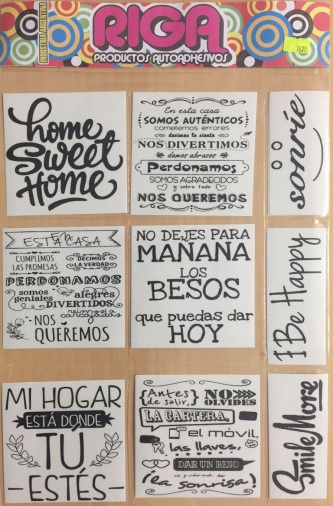 INDUSTRIA ARGENTINA
RIGA
PRODUCTOS AUTOADHESIVOS
home
Sweet
Home
En esta casa
SOMOS AUTÉNTICOS
cometemos errores
decimos lo siento
NOS DIVERTIMOS
damos abrazos
Perdonamos
SOMOS AGRADECIDOS
y sobre todo
NOS QUEREMOS
sonríe
EN
ESTA CASA
CUMPLIMOS
LAS PROMESAS
DECIMOS
LA VERDAD
PERDONAMOS
somos
geniales
alegres
DIVERTIDOS
NOS
QUEREMOS
NO DEJES PARA
MAÑANA
LOS
BESOS
que puedas dar
HOY
Be Happy
MI HOGAR
ESTÁ DONDE
TÚ
ESTÉS
{Antes
de salir,}
NO
OLVIDES
LA CARTERA,
el móvil,
las llaves,
DAR UN BESO
y ¡la sonrisa!
Smile More